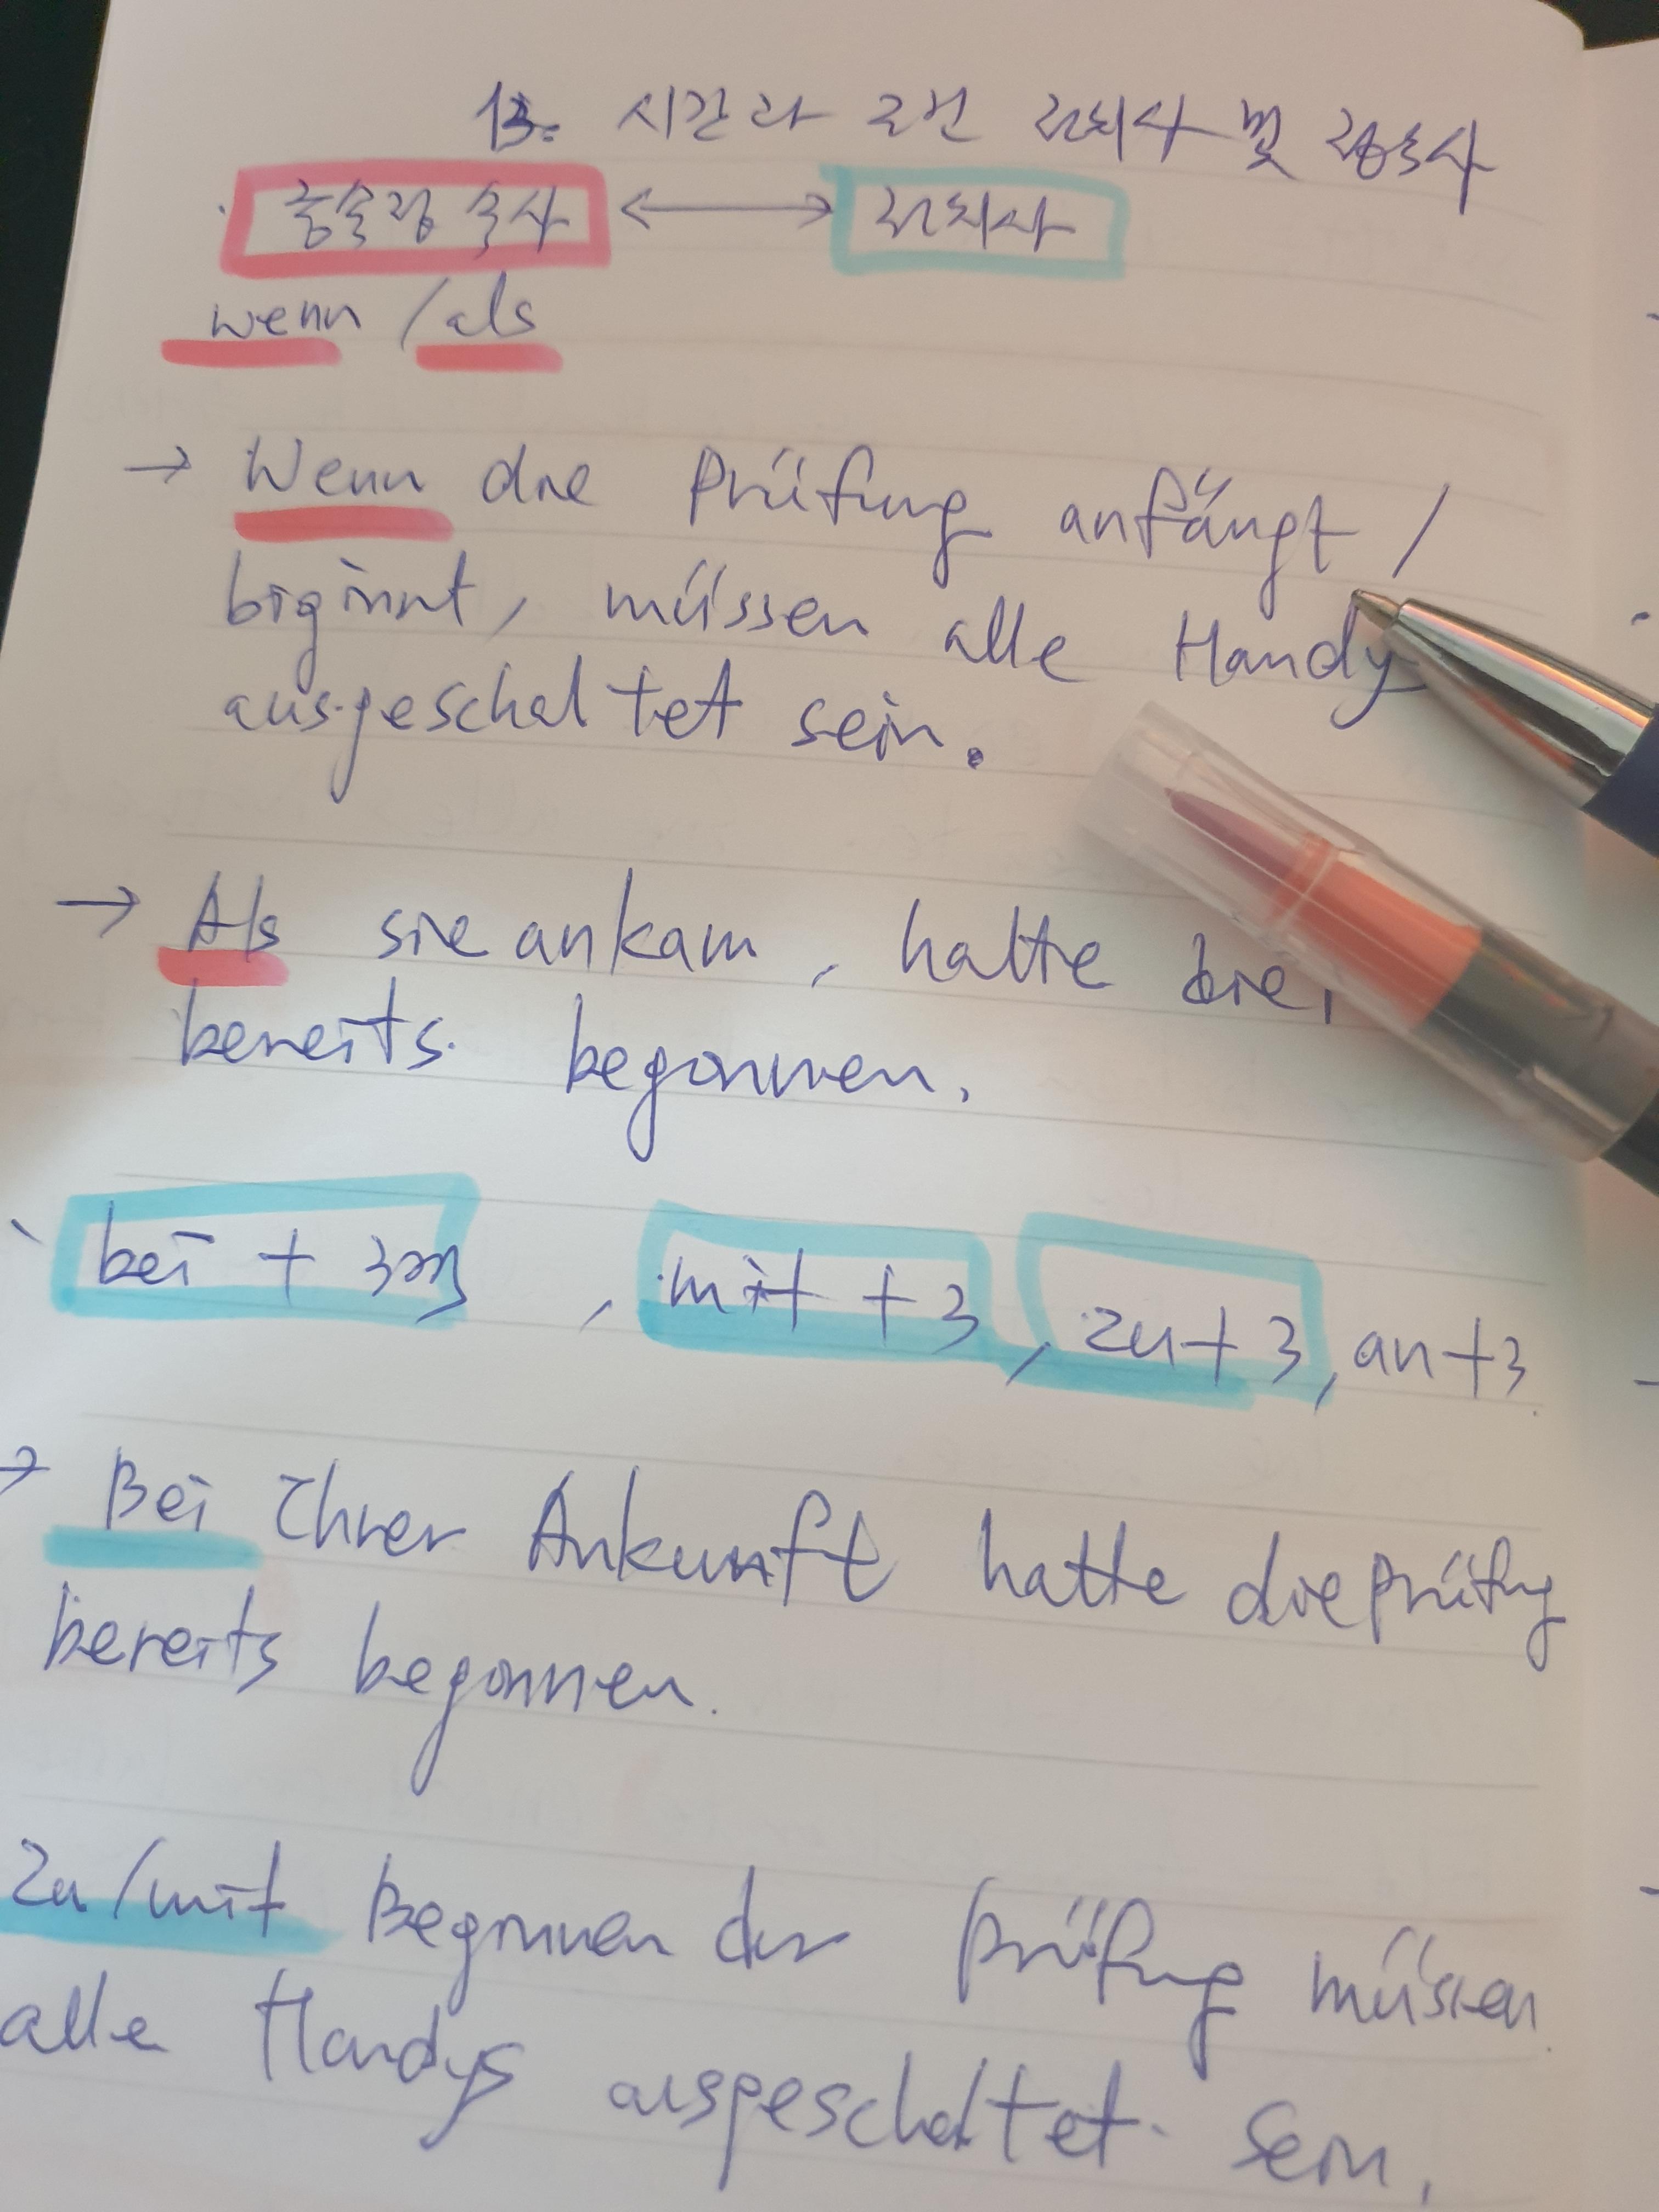 13. 시간과 조건 전치사 및 접속사
종속접속사 ⟷ 전치사
wenn / als
→ Wenn die Prüfung anfängt /
biginnt, müssen alle Handy
ausgeschaltet sein.
→ Als sie ankam, hatte die
bereits begonnen.
bei + 3격, mit + 3, zu + 3, an + 3
→ Bei Ihrer Ankunft hatte die Prüfung
bereits begonnen.
Zu / mit Beginnen der Prüfung müssen
alle Handys ausgeschaltet sein.